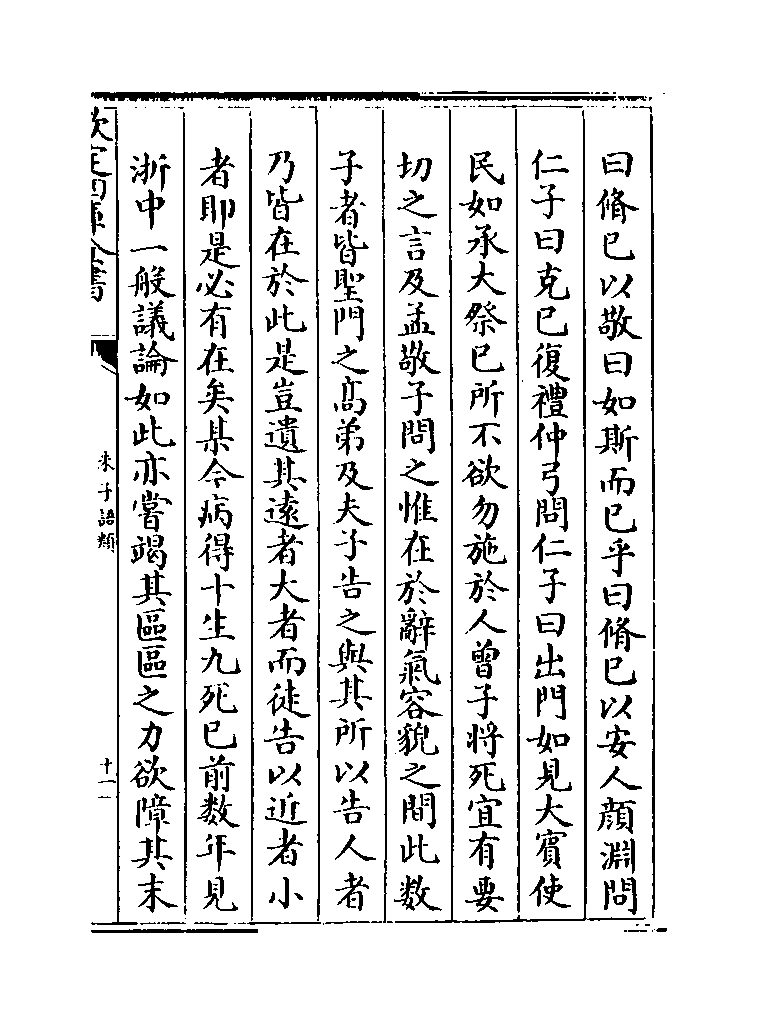 曰脩已以敬曰如斯而已乎曰脩已以安人顔淵問
仁子曰克已復禮仲弓問仁子曰出門如見大賓使
民如承大祭已所不欲勿施於人曾子將死宜有要
切之言及孟敬子問之惟在於辭氣容貌之間此數
子者皆聖門之髙弟及夫子告之與其所以告人者
乃皆在於此是豈遺其逺者大者而徒告以近者小
者耶是必有在矣某今病得十生九死已前数年見
浙中一般議論如此亦嘗竭其區區之力欲障其末
欽定四庫全書
朱子語類
十一